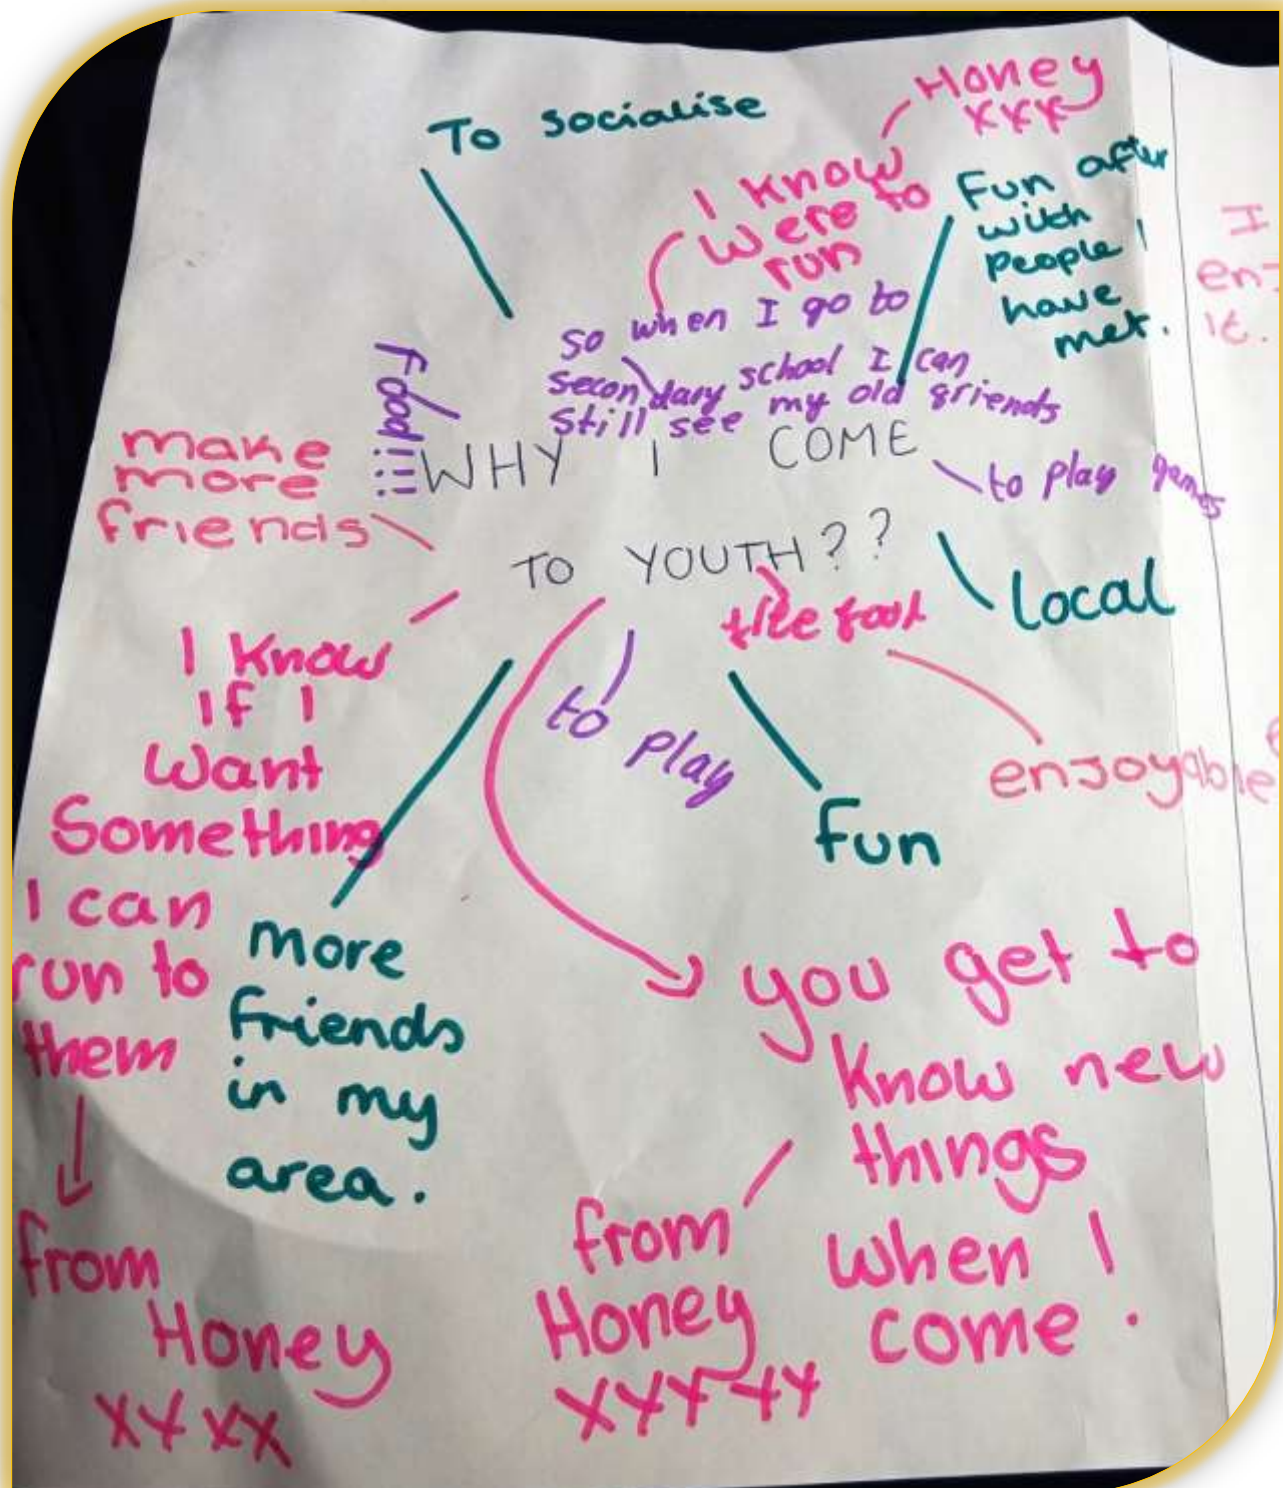 Honey
xxx
To socialise
I know
were to
run
Fun after
with
people I
have
met.
I
enj
it.
so when I go to
secondary school I can
still see my old friends
food!!!
WHY I COME
TO YOUTH??
make
more
friends
to play games
local
I know
if I
want
Something
I can
run to
them
from
Honey
xxxx
to play
fun
enjoyable
more
friends
in my
area.
you get to
know new
things
when I
come.
from
Honey
xxxxx